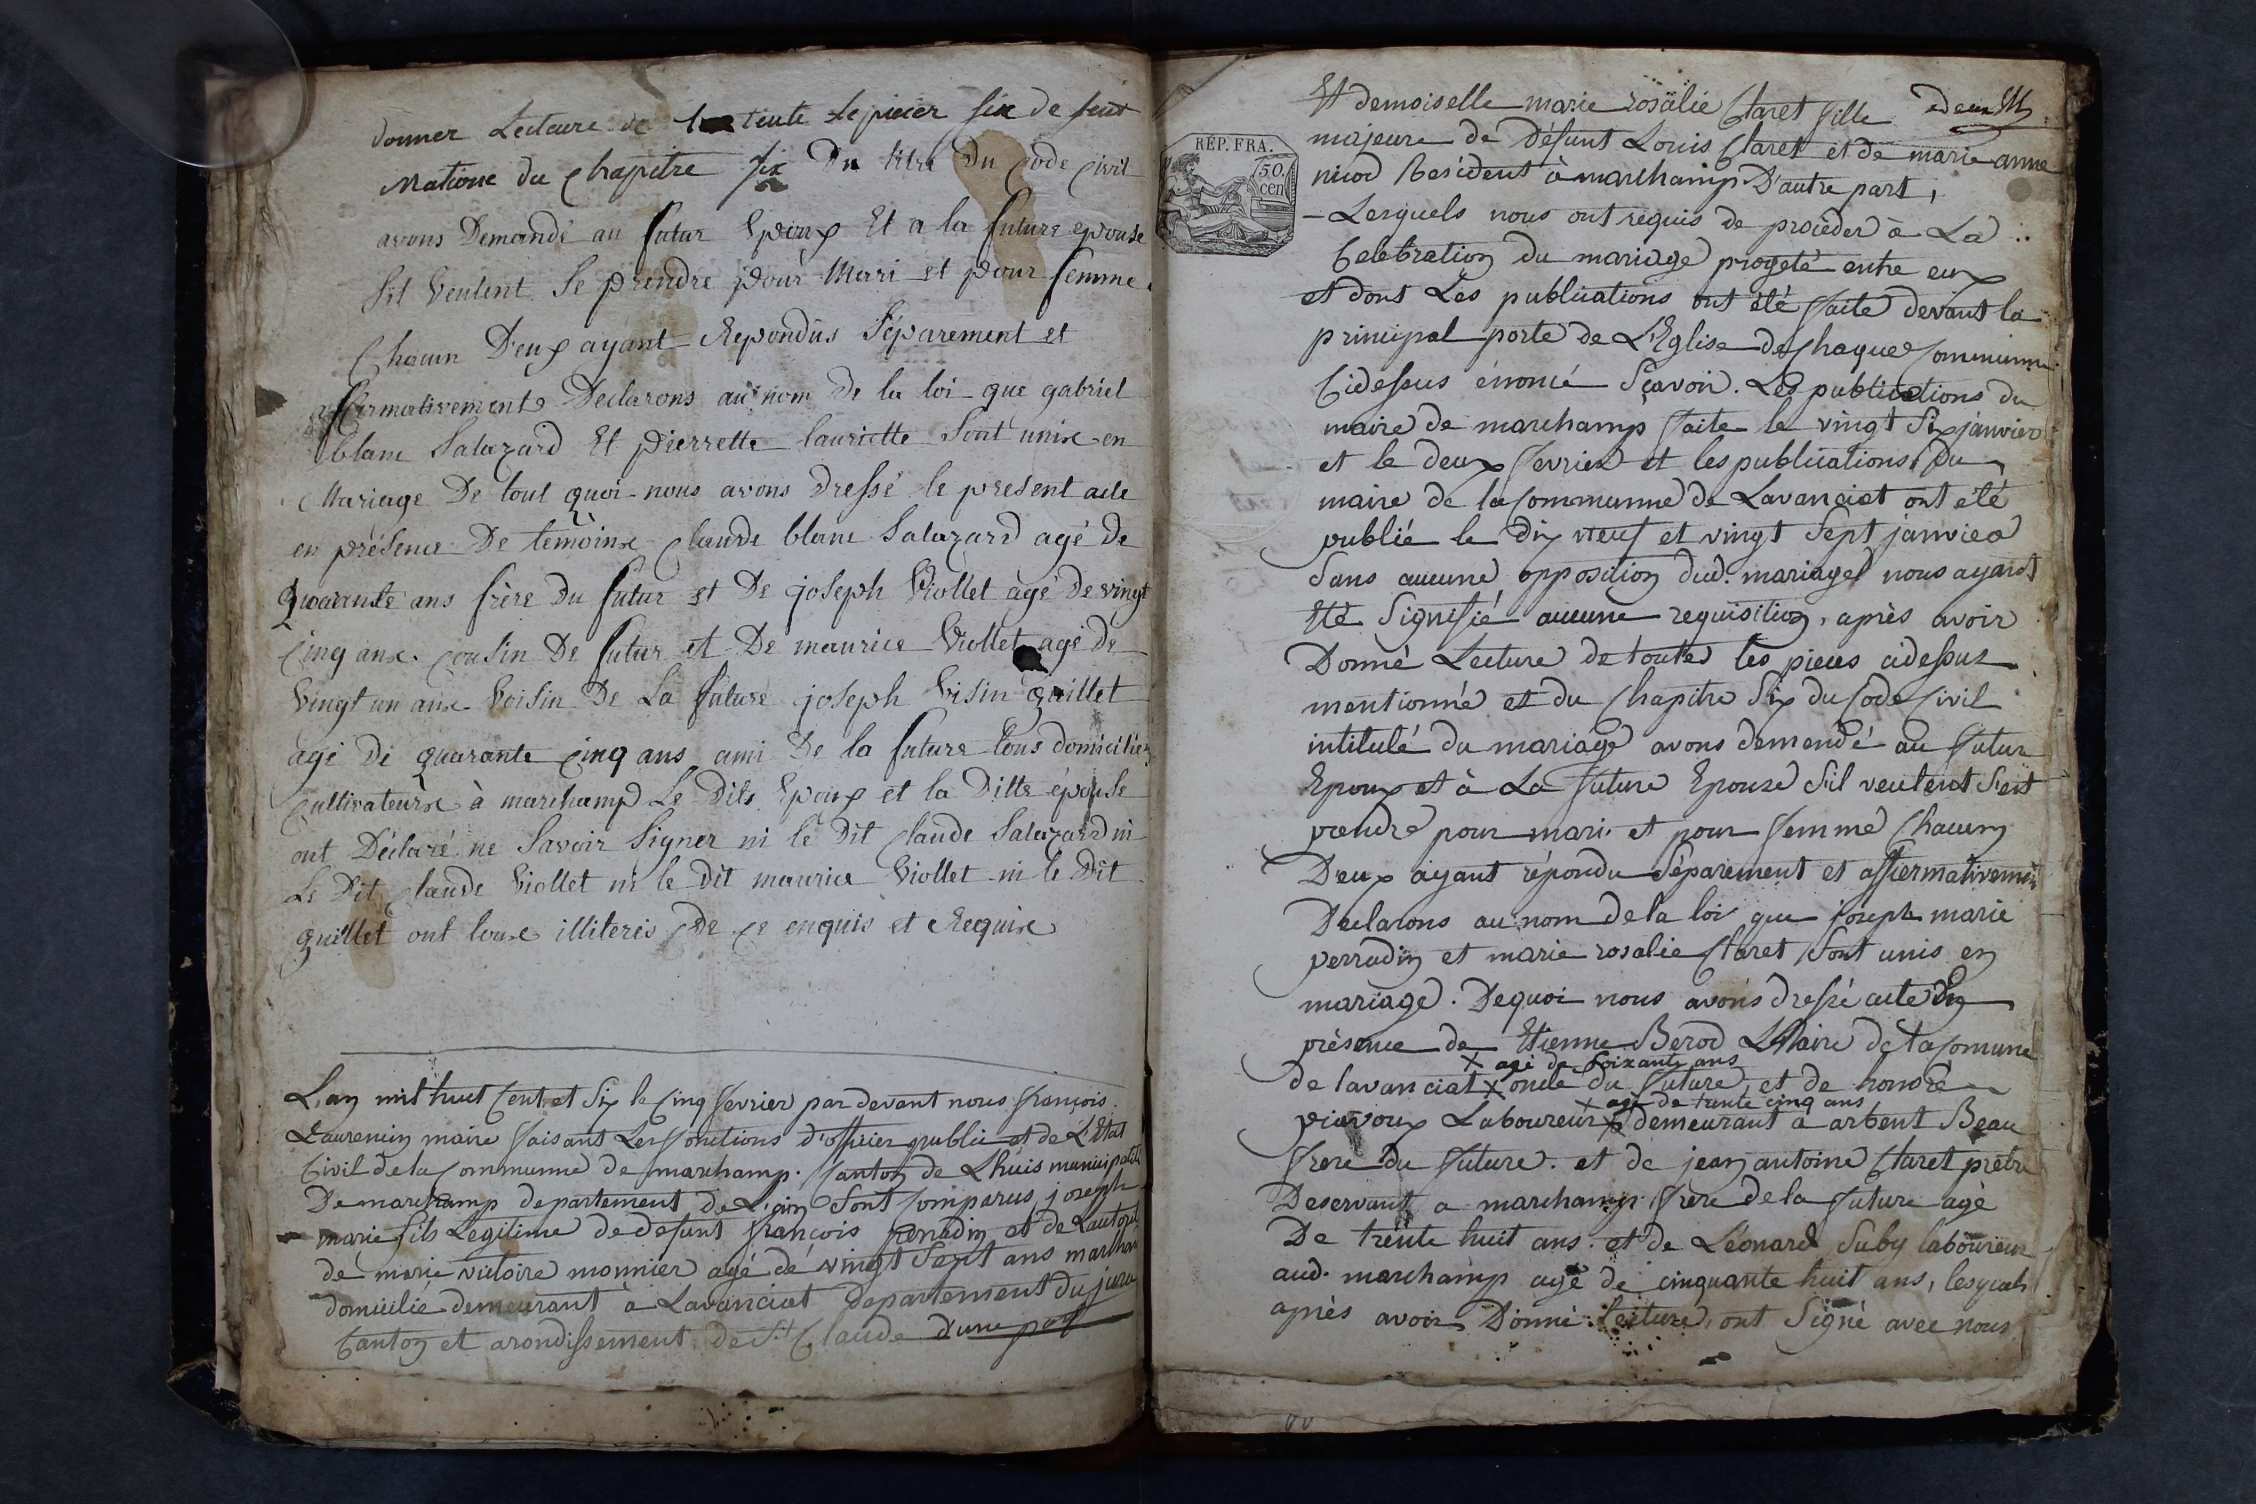 donner Lecture de toute lepieier six de sent
Matione du chapitre six Du titre Du code Civil
avons Demandé au futur Epoux Et a la future epouse
Sil veulent Se prendre pour Mari et pour femme
Chacun D'eux ayant Repondûs Séparement et
affirmativement Declarons au nom De la loi que gabriel
blanc Salazard Et pierrette lauriette Sont unix en
Mariage De tout quoi nous avons dressé le present acte
en présence De temoinx claude blanc Salazard agé De
quarante ans frère Du futur et De joseph Viollet agé de vingt
Cinq anx cousin De futur et De maurice Viollet agé de
Vingt un anx Voisin De La future joseph Visin quillet
agé De quarante cinq ans ami De la future tous domiciliez
Cultivateurx à marchamp Le Dits Epoux et la Ditte épouse
ont Déclaré ne Savoir Signer ni le Dit claude Salazard ni
Le Dit claude Viollet ni le Dit maurice Viollet ni le Dit
quillet ont toux illiteris De ce enquis et Requix
L'an mil huit Cent et Six le Cinq fevrier par devant nous françois
Laurencin maire faisant Les fonctions d'officier public et de L'Etat
Civil de la Communne de marchamp. Canton de Lhuis municipalité
De marchamp departement de L'ain Sont Comparus, joseph
marie fils Legitime de defunt françois perradin et de L'autorité
de marie victoire monnier agé de vingt Sept ans marchand
domicilié demeurant à Lavanciat departement du jura
Canton et arondissement de St Claude d'une part
Et demoiselle marie rosalie Claret fille
majeure de Défunt Louis Claret et de marie anne
niiod Résident à marchamp D'autre part,
– Lesquels nous ont requis de procéder à La
Celebration du mariage progeté entre eux
et dont Les publications ont été faite devant la
principal porte de L'Eglise de Chaque Communne
Cidessus énoncé Sçavoir. Les publications du
maire de marchamp faite le vingt Six janvier
et le deux fevrier et les publications Du
maire de la Communne de Lavanciat ont été
publié le dix neuf et vingt Sept janvier
Sans aucune opposition dud. mariage nous ayant
Eté Signifié aucune requisition, après avoir
Donné Lecture de toutes les pieces cidessus
mentionné et du Chapitre Six du Code Civil
intitulé du mariage avons demendé au futur
Epoux et à La future Epouse S'il veulent S'ent
prendre pour mari et pour femme Chacun
D'eux ayant répondu Séparement et affirmativement
Declarons au nom de la loi que joseph marie
perradin et marie rosalie Claret Sont unis en
mariage. Dequoi nous avons dressé acte En
présence de Etienne Berod Maire de la Comune
X agé de Soixante ans
de lavanciat X oncle du future, et de honoré
X agé de trente cinq ans
viavoux Laboureur X demeurant a arbent Beau
frere du future. et de jean antoine Claret prêtre
Deservant a marchamp frere de la future agé
De trente huit ans. et de Léonard Suby laboureur
aud. marchamp agé de cinquante huit ans, lesquels
après avoir Donné lecture, ont Signé avec nous
RÉP. FRA.
50.
cen